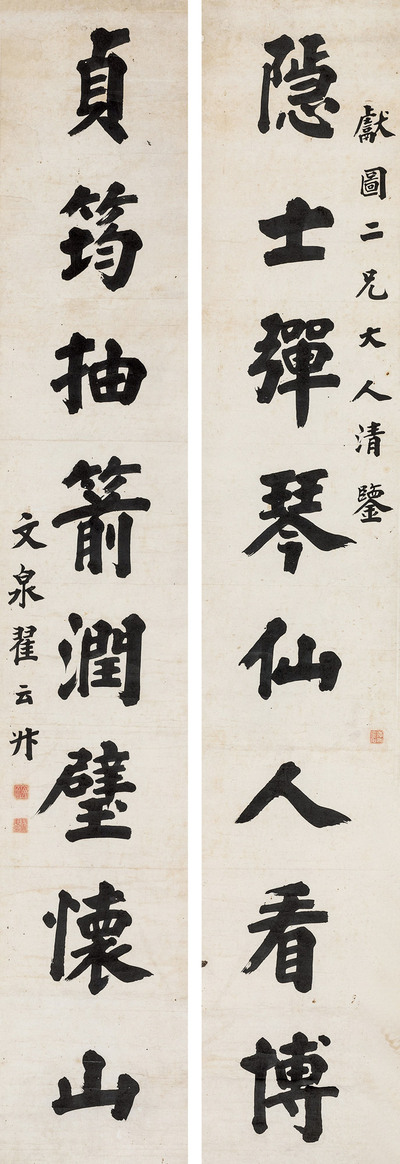 獻圖二兄大人清鑒
隱士彈琴仙人看博
貞筠抽箭潤璧懷山
文泉翟云升